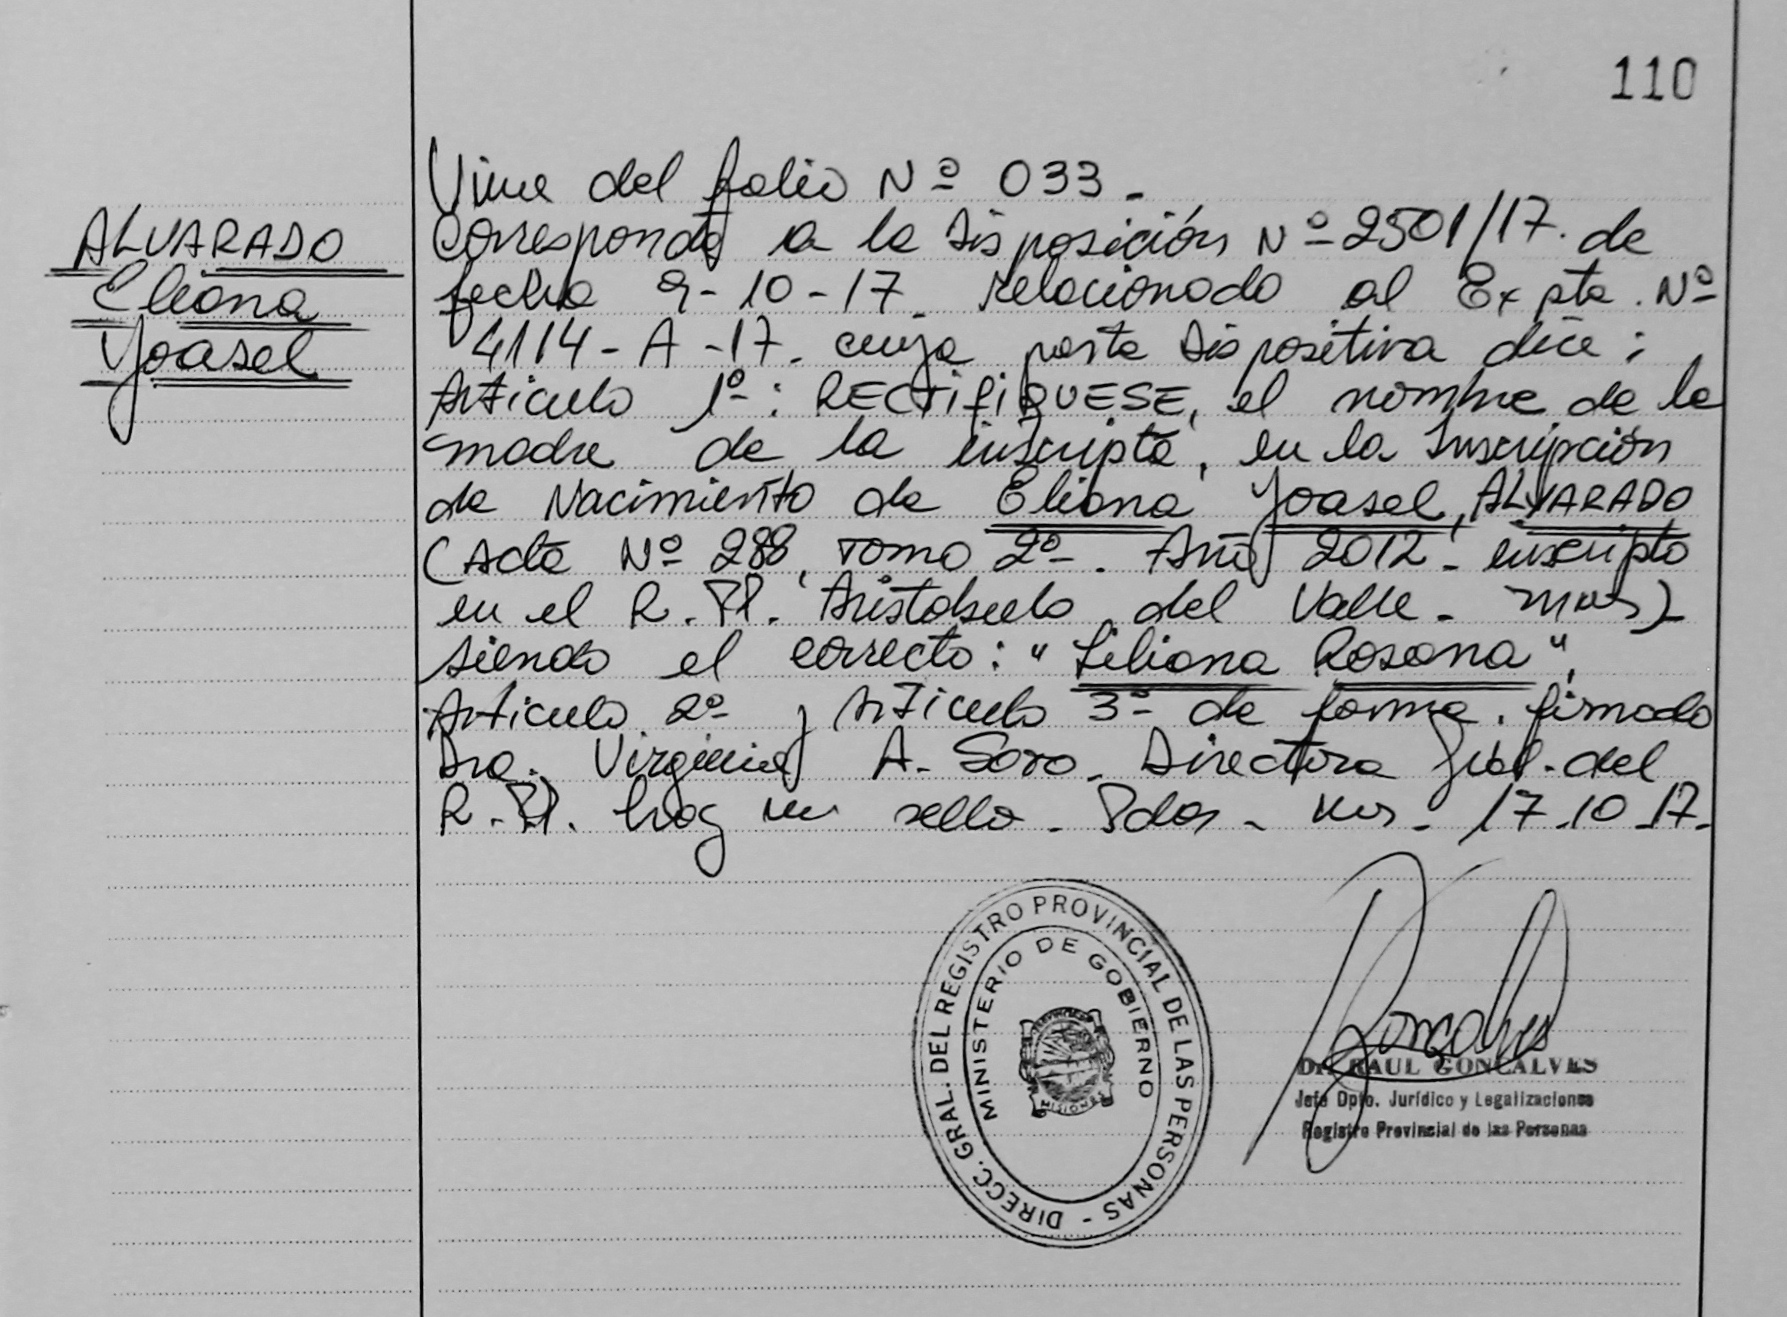 110
ALVARADO
Eliana
Yoasel
Viene del folio Nº 033.
Corresponde a la Disposición Nº 2501/17. de
fecha 9-10-17. relacionado al Expte. Nº
4114-A-17. cuya parte dispositiva dice:
Artículo 1º: RECTIFIQUESE, el nombre de la
madre de la inscripta, en la Inscripción
de Nacimiento de Eliana Yoasel, ALVARADO
(Acta Nº 288, Tomo 2º. Año 2012. inscripto
en el R.P. Aristobulo del Valle. Mnes)
siendo el correcto: "Liliana Rosana".
Artículo 2º y Artículo 3º de forma. firmado
Dra. Virginia A. Soro. Directora Gral. del
R.P. hay un sello. Pdas. Mns. 17.10.17.
DIRECC. GRAL. DEL REGISTRO PROVINCIAL DE LAS PERSONAS -
MINISTERIO DE GOBIERNO
PROVINCIA
MISIONES
Dr. RAUL GONCALVES
Jefe Dpto. Jurídico y Legalizaciones
Registro Provincial de las Personas